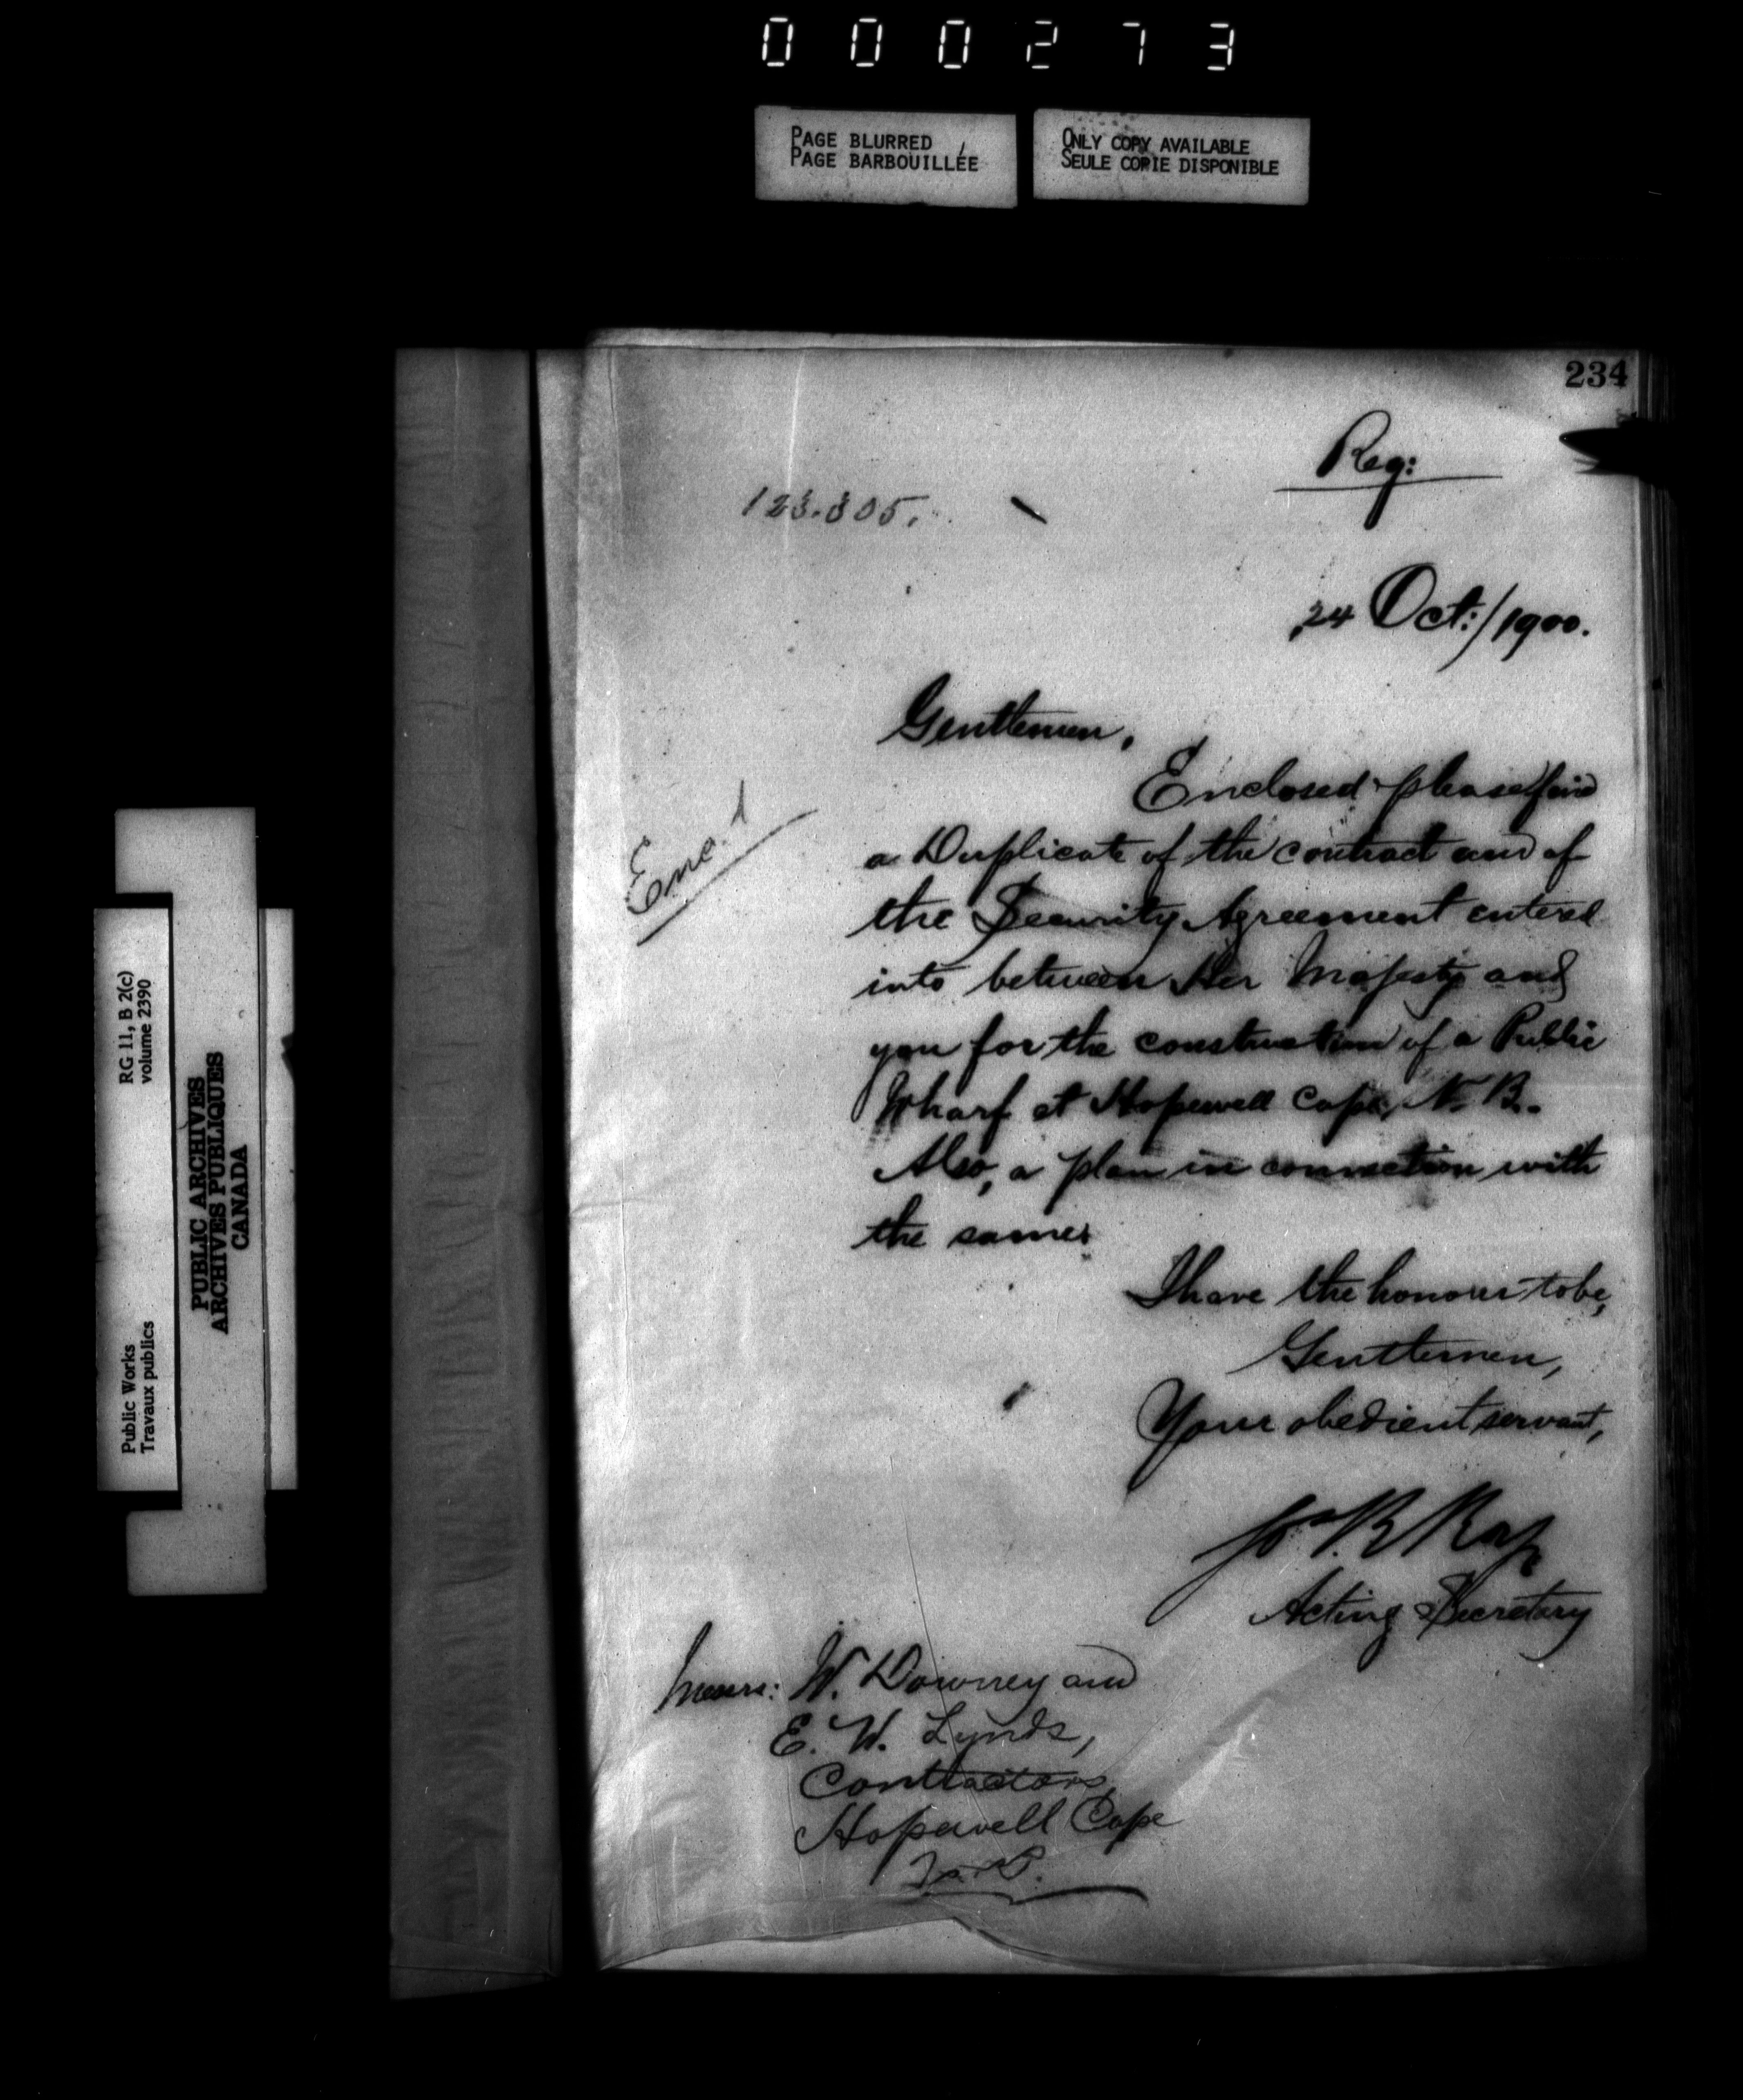 000273
PAGE BLURRED
PAGE BARBOUILLÉE
ONLY COPY AVAILABLE
SEULE COPIE DISPONIBLE
234
Reg:
123.305.
24 Oct:/1900.
Gentlemen,
Enclosed please find
a Duplicate of the contract and of
the Security Agreement entered
into between Her Majesty and
you for the construction of a Public
Wharf at Hopewell Cape, N. B.
Also, a plan in connection with
the same.
Enc.
I have the honour to be,
Gentlemen,
Your obedient servant,
Acting Secretary
Messrs: W. Downey and
E. W. Lynds,
Contractors,
Hopewell Cape
N.B.
RG 11, B 2(c)
volume 2390
Public Works
Travaux publics
PUBLIC ARCHIVES
ARCHIVES PUBLIQUES
CANADA